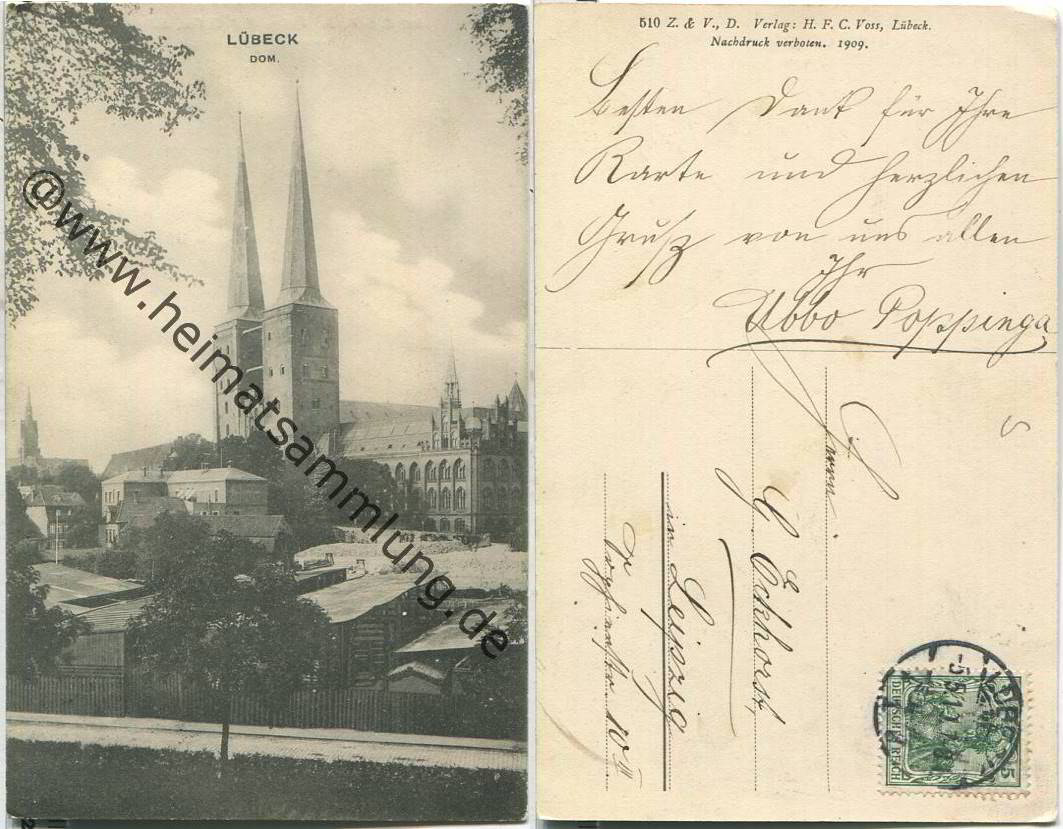 LÜBECK
DOM.
@www.heimatsammlung.de
510 Z. & V., D. Verlag: H. F. C. Voss, Lübeck.
Nachdruck verboten. 1909.
Besten Dank für Ihre
Karte und herzlichen
Gruß von uns allen
Ihr
Abbo Poppinga
Herrn
G Eckhorst,
in Leipzig
10 III
DEUTSCHES REICH
5